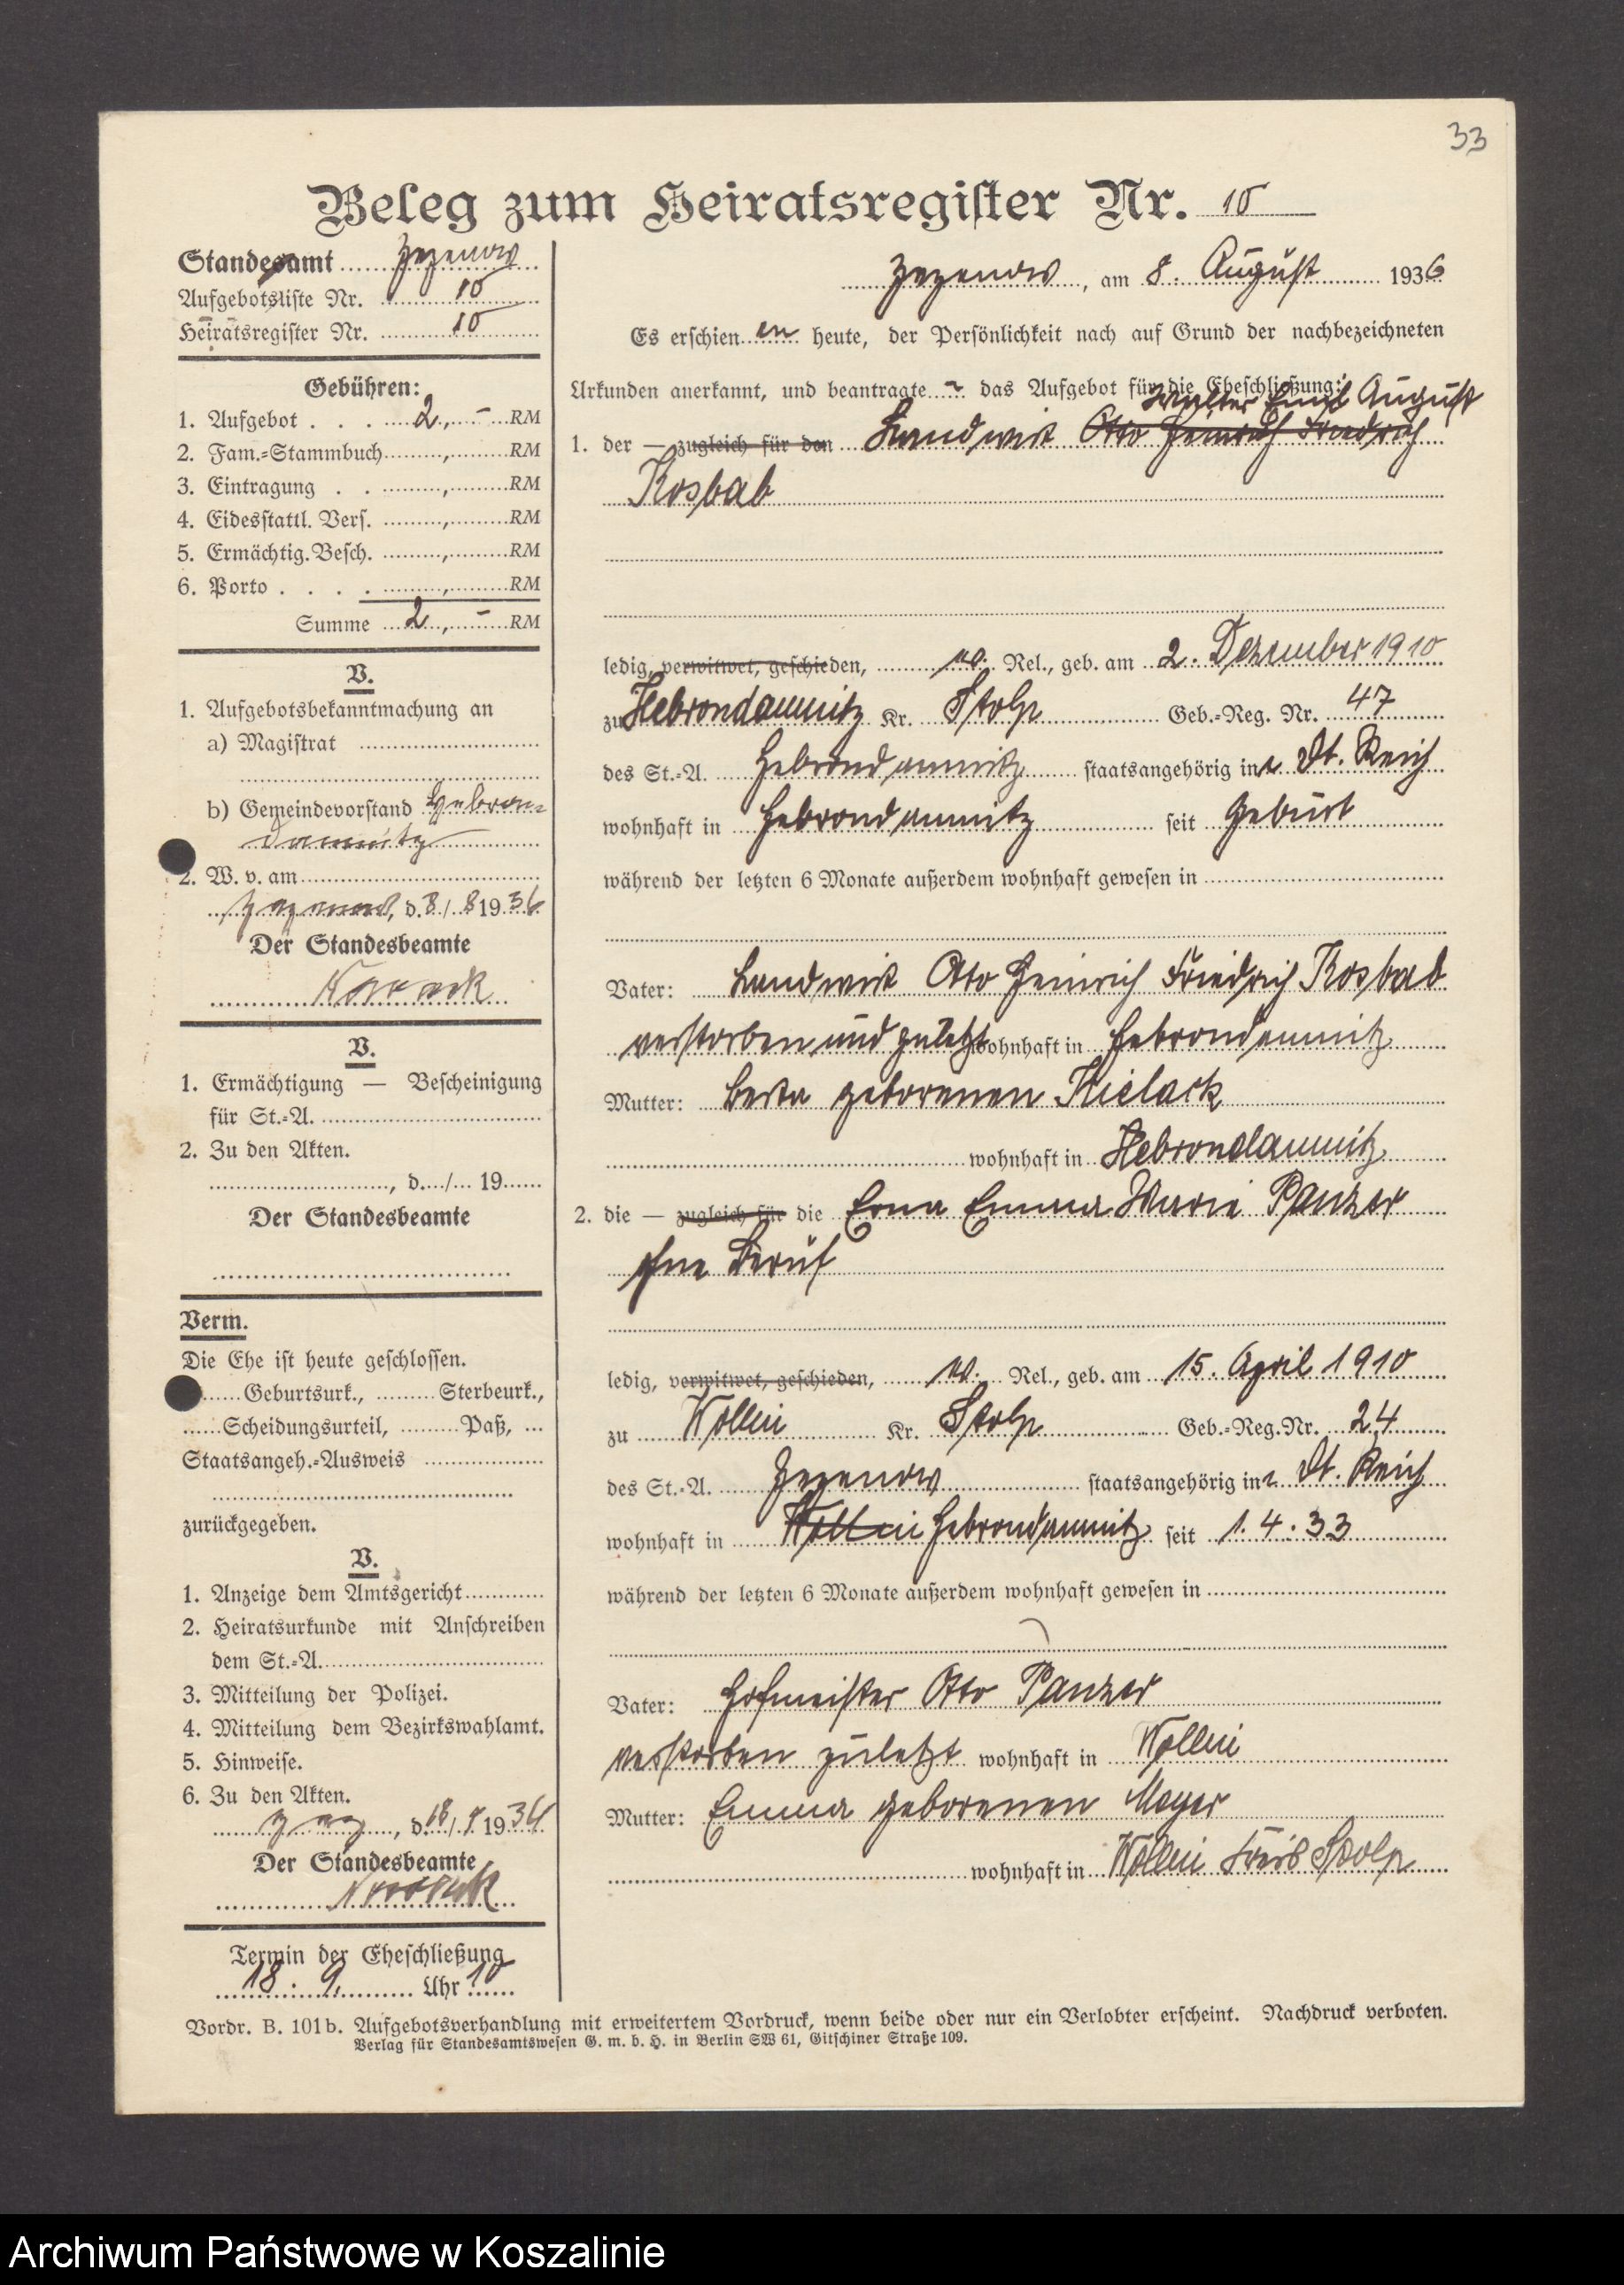 33
Beleg zum Heiratsregister Nr. 10
Standesamt Zezenow
Aufgebotsliste Nr. 10
Heiratsregister Nr. 10
Gebühren:
1. Aufgebot . . . 2,- RM
2. Fam.-Stammbuch , RM
3. Eintragung . . , RM
4. Eidesstattl. Vers. , RM
5. Ermächtig. Besch. , RM
6. Porto . . . . , RM
Summe 2,- RM
V.
1. Aufgebotsbekanntmachung an
a) Magistrat
b) Gemeindevorstand Hebron-
damnitz
2. W. v. am
Zezenow, d. 8/8 1936
Der Standesbeamte
V.
1. Ermächtigung — Bescheinigung
für St.-A.
2. Zu den Akten.
, d. / 19
Der Standesbeamte
Verm.
Die Ehe ist heute geschlossen.
Geburtsurk., Sterbeurk.,
Scheidungsurteil, Paß,
Staatsangeh.-Ausweis
zurückgegeben.
V.
1. Anzeige dem Amtsgericht
2. Heiratsurkunde mit Anschreiben
dem St.-A.
3. Mitteilung der Polizei.
4. Mitteilung dem Bezirkswahlamt.
5. Hinweise.
6. Zu den Akten.
Zez, d. 18/9 1936
Der Standesbeamte
Termin der Eheschließung
18. 9. Uhr 10
Zezenow, am 8. August 1936
Es erschienen heute, der Persönlichkeit nach auf Grund der nachbezeichneten
Urkunden anerkannt, und beantragte - das Aufgebot für die Eheschließung:
Walter Emil August
1. der — zugleich für den Landwirt Otto Heinrich Friedrich
Kosbab
ledig, verwitwet, geschieden, ev. Rel., geb. am 2. Dezember 1910
zu Hebrondamnitz Kr. Stolp Geb.-Reg. Nr. 47
des St.-A. Hebrondamnitz staatsangehörig in Dt. Reich
wohnhaft in Hebrondamnitz seit Geburt
während der letzten 6 Monate außerdem wohnhaft gewesen in
Vater: Landwirt Otto Heinrich Friedrich Kosbab
verstorben und zuletzt wohnhaft in Hebrondamnitz
Mutter: Berta geborenen Kielack
wohnhaft in Hebrondamnitz
2. die — zugleich für die Erna Emma Marie Panzer
ohne Beruf
ledig, verwitwet, geschieden, ev. Rel., geb. am 15. April 1910
zu Wollin Kr. Stolp Geb.-Reg.Nr. 24
des St.-A. Zezenow staatsangehörig in Dt. Reich
wohnhaft in Wollin Hebrondamnitz seit 1.4.33
während der letzten 6 Monate außerdem wohnhaft gewesen in
Vater: Hofmeister Otto Panzer
verstorben zuletzt wohnhaft in Wollin
Mutter: Emma geborenen Meyer
wohnhaft in Wollin Kreis Stolp
Vordr. B. 101b. Aufgebotsverhandlung mit erweitertem Vordruck, wenn beide oder nur ein Verlobter erscheint. Nachdruck verboten.
Verlag für Standesamtswesen G. m. b. H. in Berlin SW 61, Gitschiner Straße 109.
Archiwum Państwowe w Koszalinie